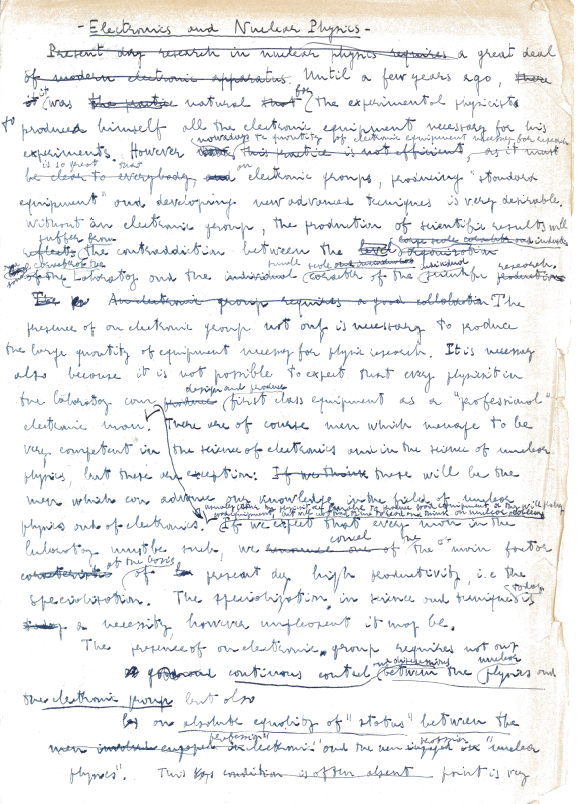 - Electronics and Nuclear Physics -
Present day research in nuclear physics requires a great deal
of modern electronic apparatus. Until a few years ago, there
it was the practice natural that for the experimental physicists
to produced himself all the electronic equipment necessary for his
nowadays the quantity of electronic equipment necessary for research
experiments. However this practice is not efficient, as it must
is so great that
be clear to everybody, and an electronic groups, producing "standard
equipment" and developing new advanced tecniques is very desirable.
Without an electronic group, the production of scientific results will
suffer from
reflects the contraddiction between the level organization
of the Laboratory and the individual caracter of the scientific production
research.
An electronic group requires a good collaboration The
presence of an electronic group not only is necessary to produce
the large quantity of equipment necessary for physic research. It is necessary
also because it is not possible to expect that every physicist in
design and produce
the laboratory can produce first class equipment as a "professional"
electronic man. There are of course men which manage to be
very competent in the science of electronics and in the science of nuclear
physics, but these are exception: If we think these will be the
men which can advance our knowledge in the field of nuclear
physics and of electronics. If we expect that every man in the
Laboratory must be such, we cancel one of the main factor
caracteristic at the basis of present day high productivity, i.e the
specialization. The specialization in science and tecniques is
today
today a necessity, however unpleasent it may be.
The presence of an electronic group requires not only
and discussions nuclear
a good and continuous contact between the physics and
the electronic group but also
an absolute equality of "status" between the
men involved engaged in electronic" and the men engaged in "nuclear
physics". This condition is often absent point is very